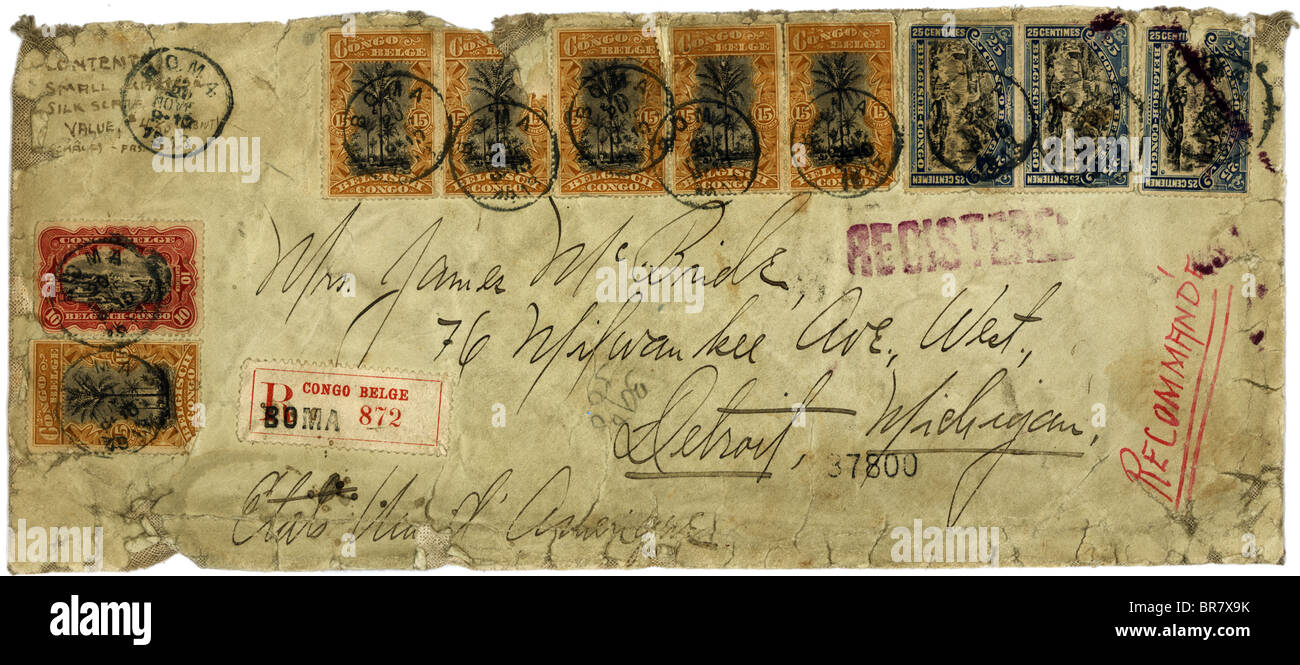 CONTENT
SMALL
SILK SCARF
VALUE
BOMA
CONGO BELGE
15 15
BELGISCH
CONGO
BOMA
CONGO BELGE
15 15
BELGISCH
CONGO
BOMA
CONGO BELGE
15 15
BELGISCH
CONGO
BOMA
CONGO BELGE
15 15
BELGISCH
CONGO
BOMA
CONGO BELGE
15 15
BELGISCH
CONGO
BOMA
25 CENTIMES 25
BELGISCH-CONGO
25 CENTIEMEN
25 CENTIMES 25
BELGISCH-CONGO
25 CENTIEMEN
25 CENTIMES 25
BELGISCH-CONGO
25 CENTIEMEN
REGISTERED
Mrs. James McBride,
76 Milwaukee Ave., West,
Detroit, Michigan,
37800
RECOMMANDÉ
CONGO BELGE
10 10
BELGISCH-CONGO
BOMA
CONGO BELGE
15 15
BELGISCH
CONGO
R CONGO BELGE
BOMA 872
Etats Unis d'Amerique
alamy
alamy
Image ID: BR7X9K
www.alamy.com